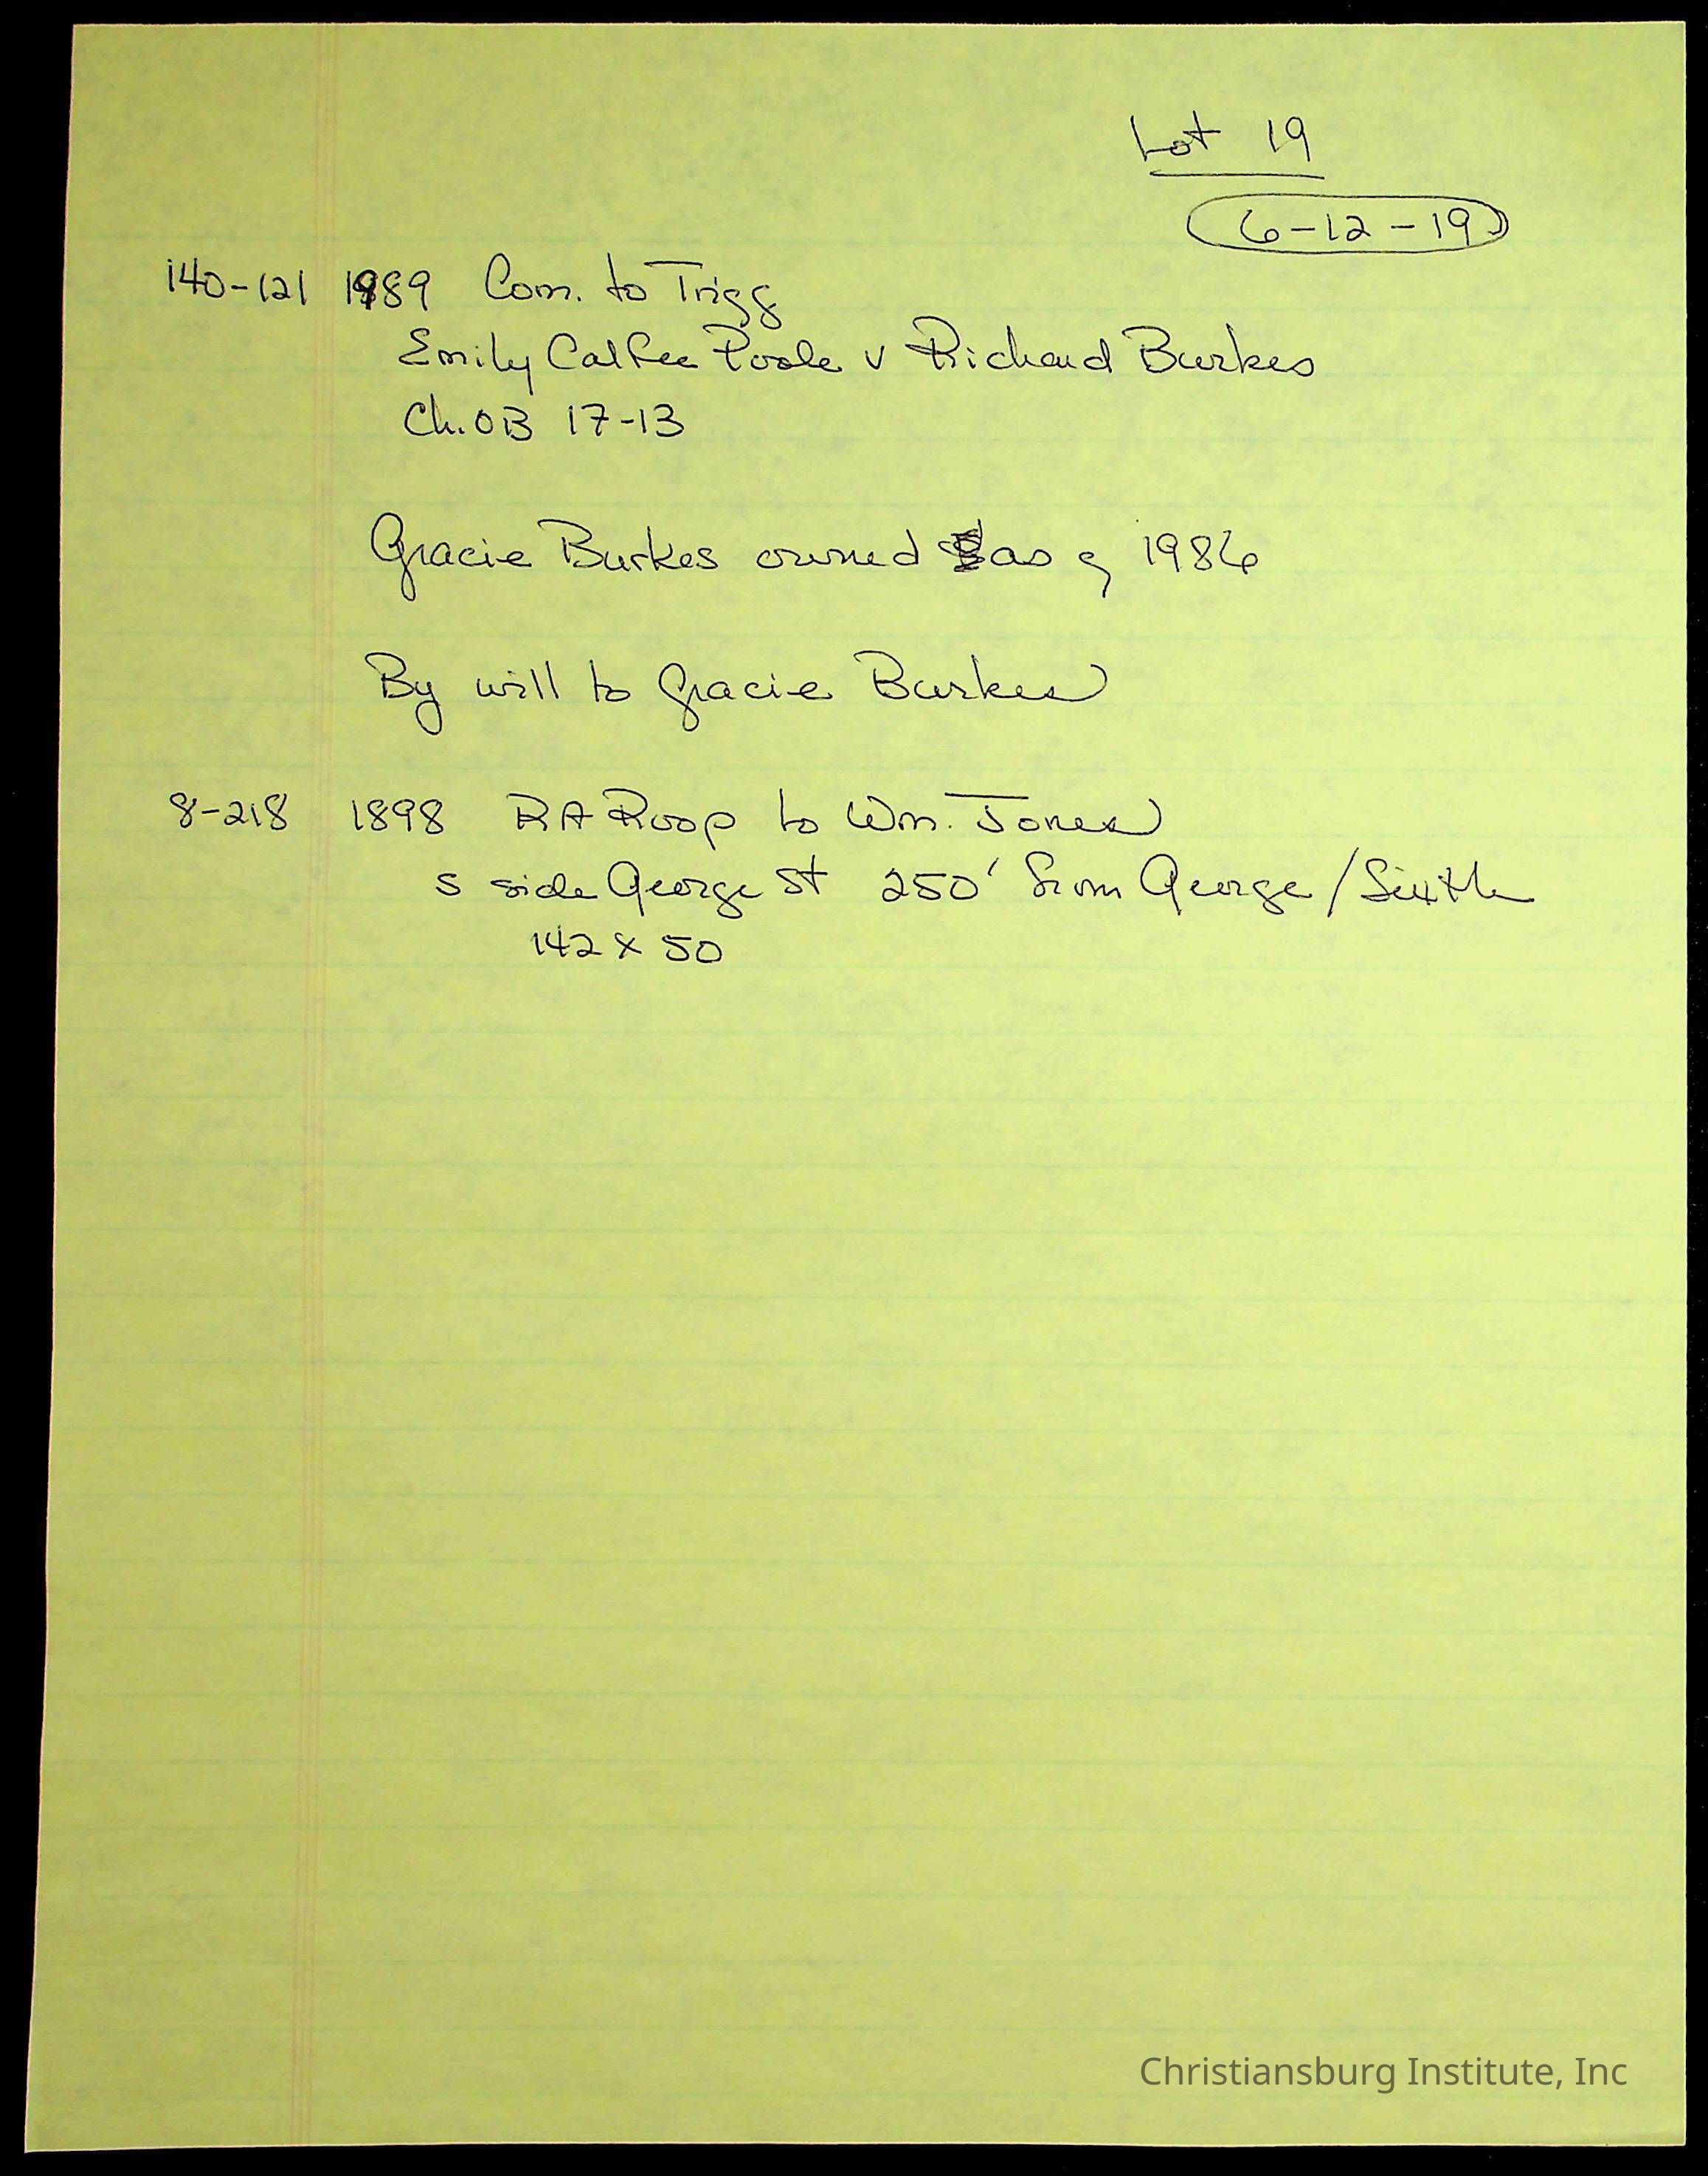 Lot 19
6-12-19
140-121 1989 Com. to Trigg
Emily Calfee Poole v Richard Burkes
Ch. OB 17-13
Gracie Burkes owned as of 1986
By will to Gracie Burkes
8-218 1898 RA Roop to Wm. Jones
S side George St 250' from George/Sixth
142 x 50
Christiansburg Institute, Inc